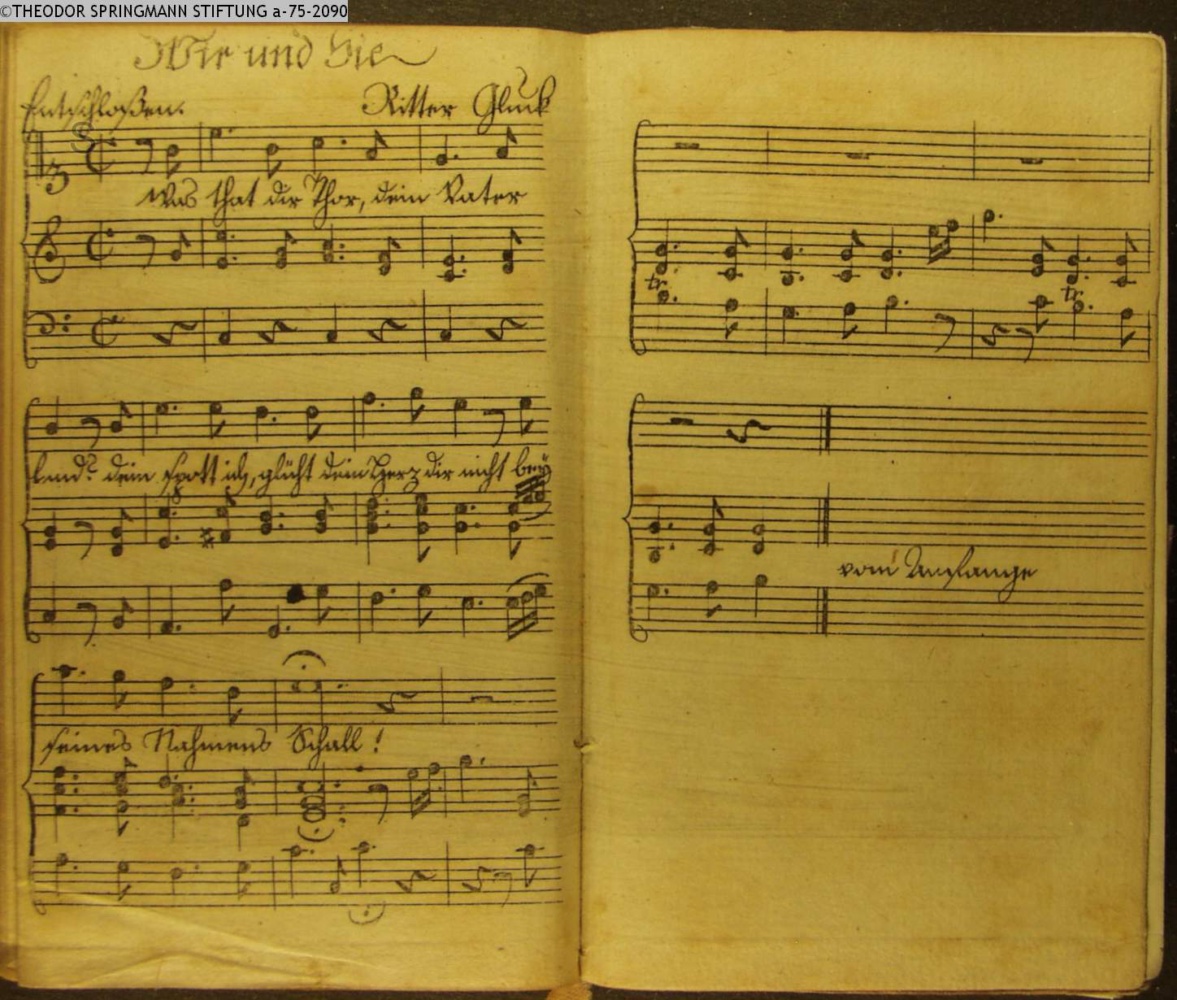 ©THEODOR SPRINGMANN STIFTUNG a-75-2090
Wir und Sie
Entschloßen. Ritter Gluck
Was that dir Thor, dein Vater
land? dein spott ich, glüht dein Herz dir nicht bey
seines Nahmens Schall!
tr. tr.
vom Anfange